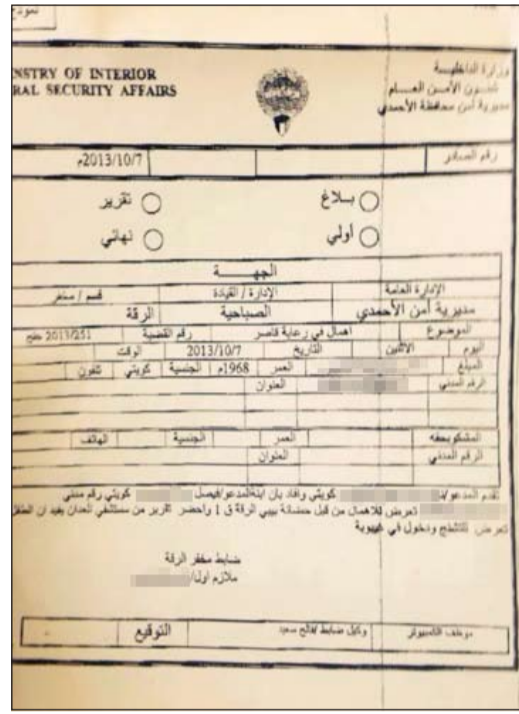 نموذج
MINISTRY OF INTERIOR
RAL SECURITY AFFAIRS
وزارة الداخلية
شئون الأمن العام
مديرية أمن محافظة الأحمدي
رقم الصادر
2013/10/7م
بلاغ تقرير
أولي نهائي
الجهة
الإدارة العامة الإدارة / القيادة قسم / مخفر
مديرية أمن الأحمدي الصباحية الرقة
الموضوع اهمال في رعاية قاصر رقم القضية 2013/251 جنح
اليوم الاثنين التاريخ 2013/10/7 الوقت
المبلغ العمر 1968م الجنسية كويتي تلفون
الرقم المدني العنوان
المشكو بحقه العمر الجنسية الهاتف
الرقم المدني العنوان
تقدم المدعو/ كويتي وأفاد بان ابنة المدعو/فيصل كويتي رقم مدني
تعرض للاهمال من قبل حضانة بيبي الرقة ق 1 واحضر تقرير من مستشفي العدان يفيد ان الطفل
تعرض للتشنج ودخول في غيبوبة
ضابط مخفر الرقة
ملازم اول/
موظف الكمبيوتر وكيل ضابط /فالح سعيد التوقيع